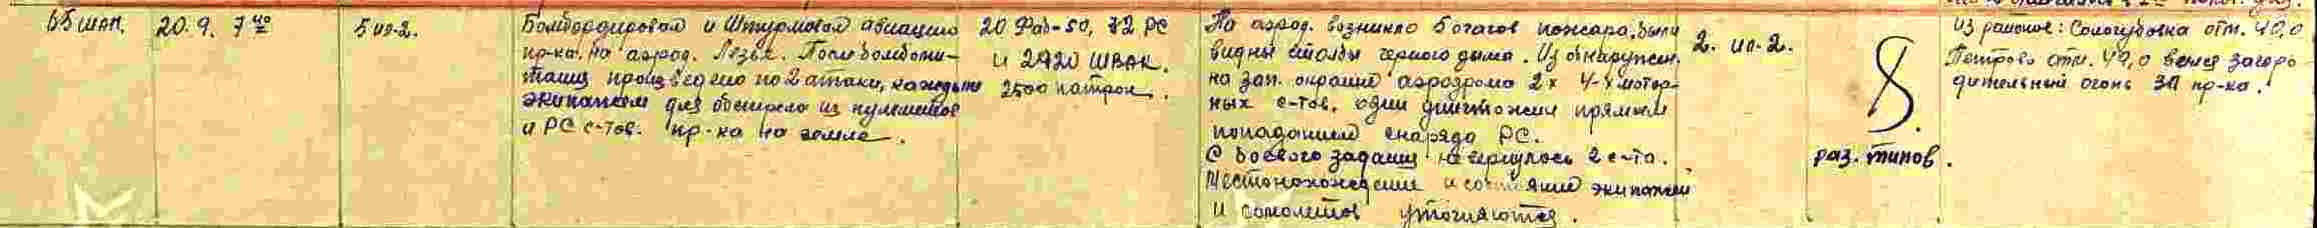 15 ШАП.
20.9. 7 40
5 ил-2.
Бомбардировал и Штурмовал авиацию
пр-ка на аэрод. Лезье. После бомбоме-
тания произведено по 2 атаки, каждым
экипажем для обстрела из пулеметов
и РС с-тов. пр-ка на земле.
20 Фаб-50, 32 РС
и 2920 ШВАК.
2500 патрон.
На аэрод. возникло 5 очагов пожара, были
видны столбы черного дыма. Из обнаружен.
на зап. окраине аэродрома 2х 4-х мотор-
ных с-тов. один уничтожен прямым
попаданием снаряда РС.
С боевого задания не вернулось 2 с-та.
Местонахождение и состояние экипажей
и самолетов уточняются.
2. ил-2.
8
раз. типов.
Из районов: Сологубовка отм. 40,0
Петрово отм. 49,0 велся загра
дительный огонь ЗА пр-ка.